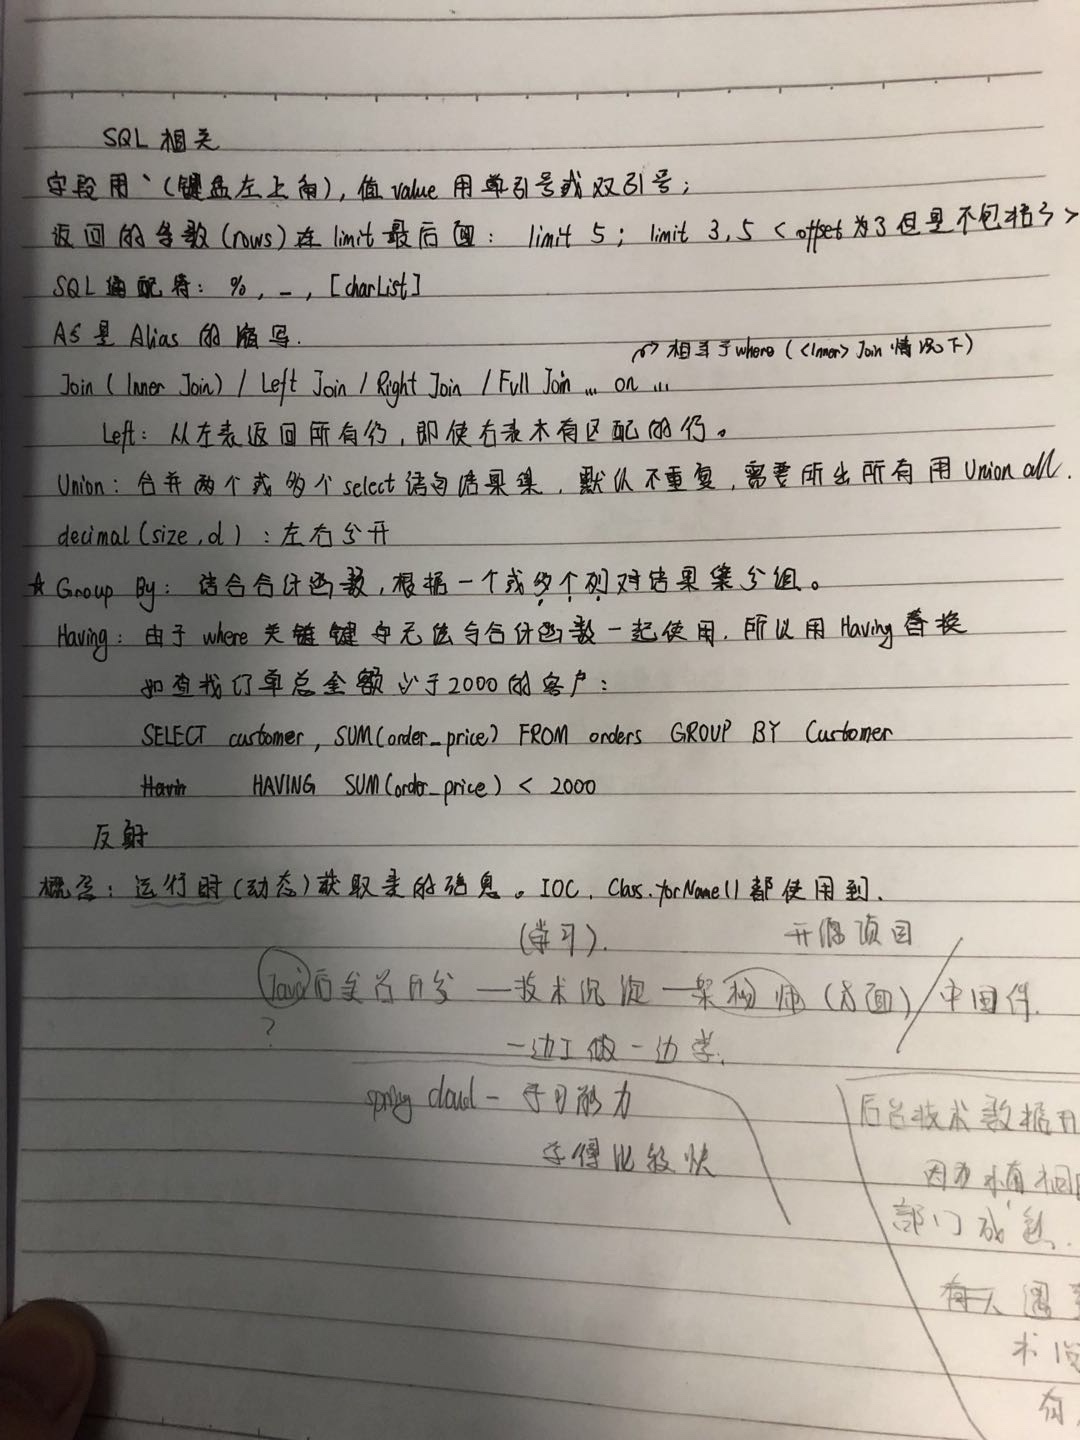 SQL 相关
字段用 ` (键盘左上角), 值 value 用单引号或双引号;
返回的条数 (rows) 在 limit 最后面: limit 5; limit 3,5 < offset 为3 但是不包括3 >
SQL 通配符: %, _, [charList]
AS 是 Alias 的缩写.
相当于 where (<Inner> Join 情况下)
Join (Inner Join) / Left Join / Right Join / Full Join ... on ...
Left: 从左表返回所有行, 即使右表木有匹配的行。
Union: 合并两个或多个 select 语句结果集, 默认不重复, 需要所出所有用 Union all.
decimal(size, d) : 左右分开
☆ Group By: 结合合计函数, 根据一个或多个列对结果集分组。
Having: 由于 where 关键字无法与合计函数一起使用, 所以用 Having 替换
如查找订单总金额少于2000的客户:
SELECT customer, SUM(order_price) FROM orders GROUP BY Customer
Havin HAVING SUM(order_price) < 2000
反射
概念: 运行时(动态)获取类的信息。IOC, Class.forName() 都使用到.
(学习). 开源项目
Java后台开发 — 技术沉淀 — 架构师 (方面) / 中间件.
?
一边工做一边学.
spring cloud - 学习能力
后台技术数据
学得比较快
因为
部门成